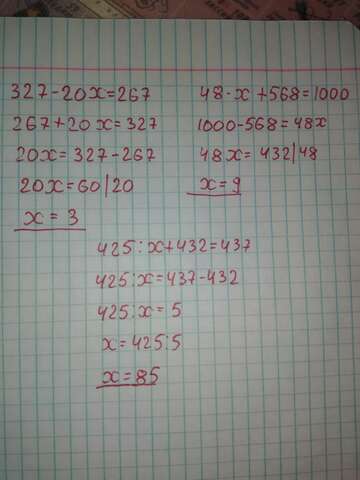 327-20x=267
267+20x=327
20x=327-267
20x=60|20
x=3
48·x+568=1000
1000-568=48x
48x=432|48
x=9
425:x+432=437
425:x=437-432
425:x=5
x=425:5
x=85